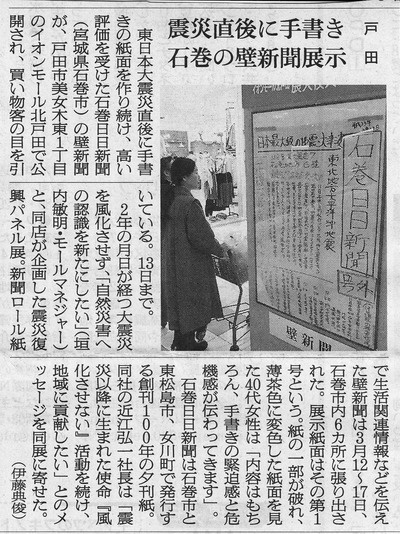 戸田
震災直後に手書き
石巻の壁新聞展示
東日本大震災直後に手書
きの紙面を作り続け、高い
評価を受けた石巻日日新聞
（宮城県石巻市）の壁新聞
が、戸田市美女木東１丁目
のイオンモール北戸田で公
開され、買い物客の目を引
いている。13日まで。
２年の月日が経つ大震災
を風化させず、「自然災害へ
の認識を新たにしたい」（垣
内敏明・モールマネジャー）
と、同店が企画した震災復
興パネル展。新聞ロール紙
で生活関連情報などを伝え
た壁新聞は３月12〜17日、
石巻市内６カ所に張り出さ
れた。展示紙面はその第１
号という。紙の一部が破れ、
薄茶色に変色した紙面を見
た40代女性は「内容はもち
ろん、手書きの緊迫感と危
機感が伝わってきます」。
石巻日日新聞は石巻市と
東松島市、女川町で発行す
る創刊１００年の夕刊紙。
同社の近江弘一社長は「震
災以降に生まれた使命『風
化させない』活動を続け、
地域に貢献したい」とのメ
ッセージを同展に寄せた。
（伊藤典俊）
石巻日日新聞
号外
日本最大級の地震・大津波
東北地方太平洋沖地震
壁新聞